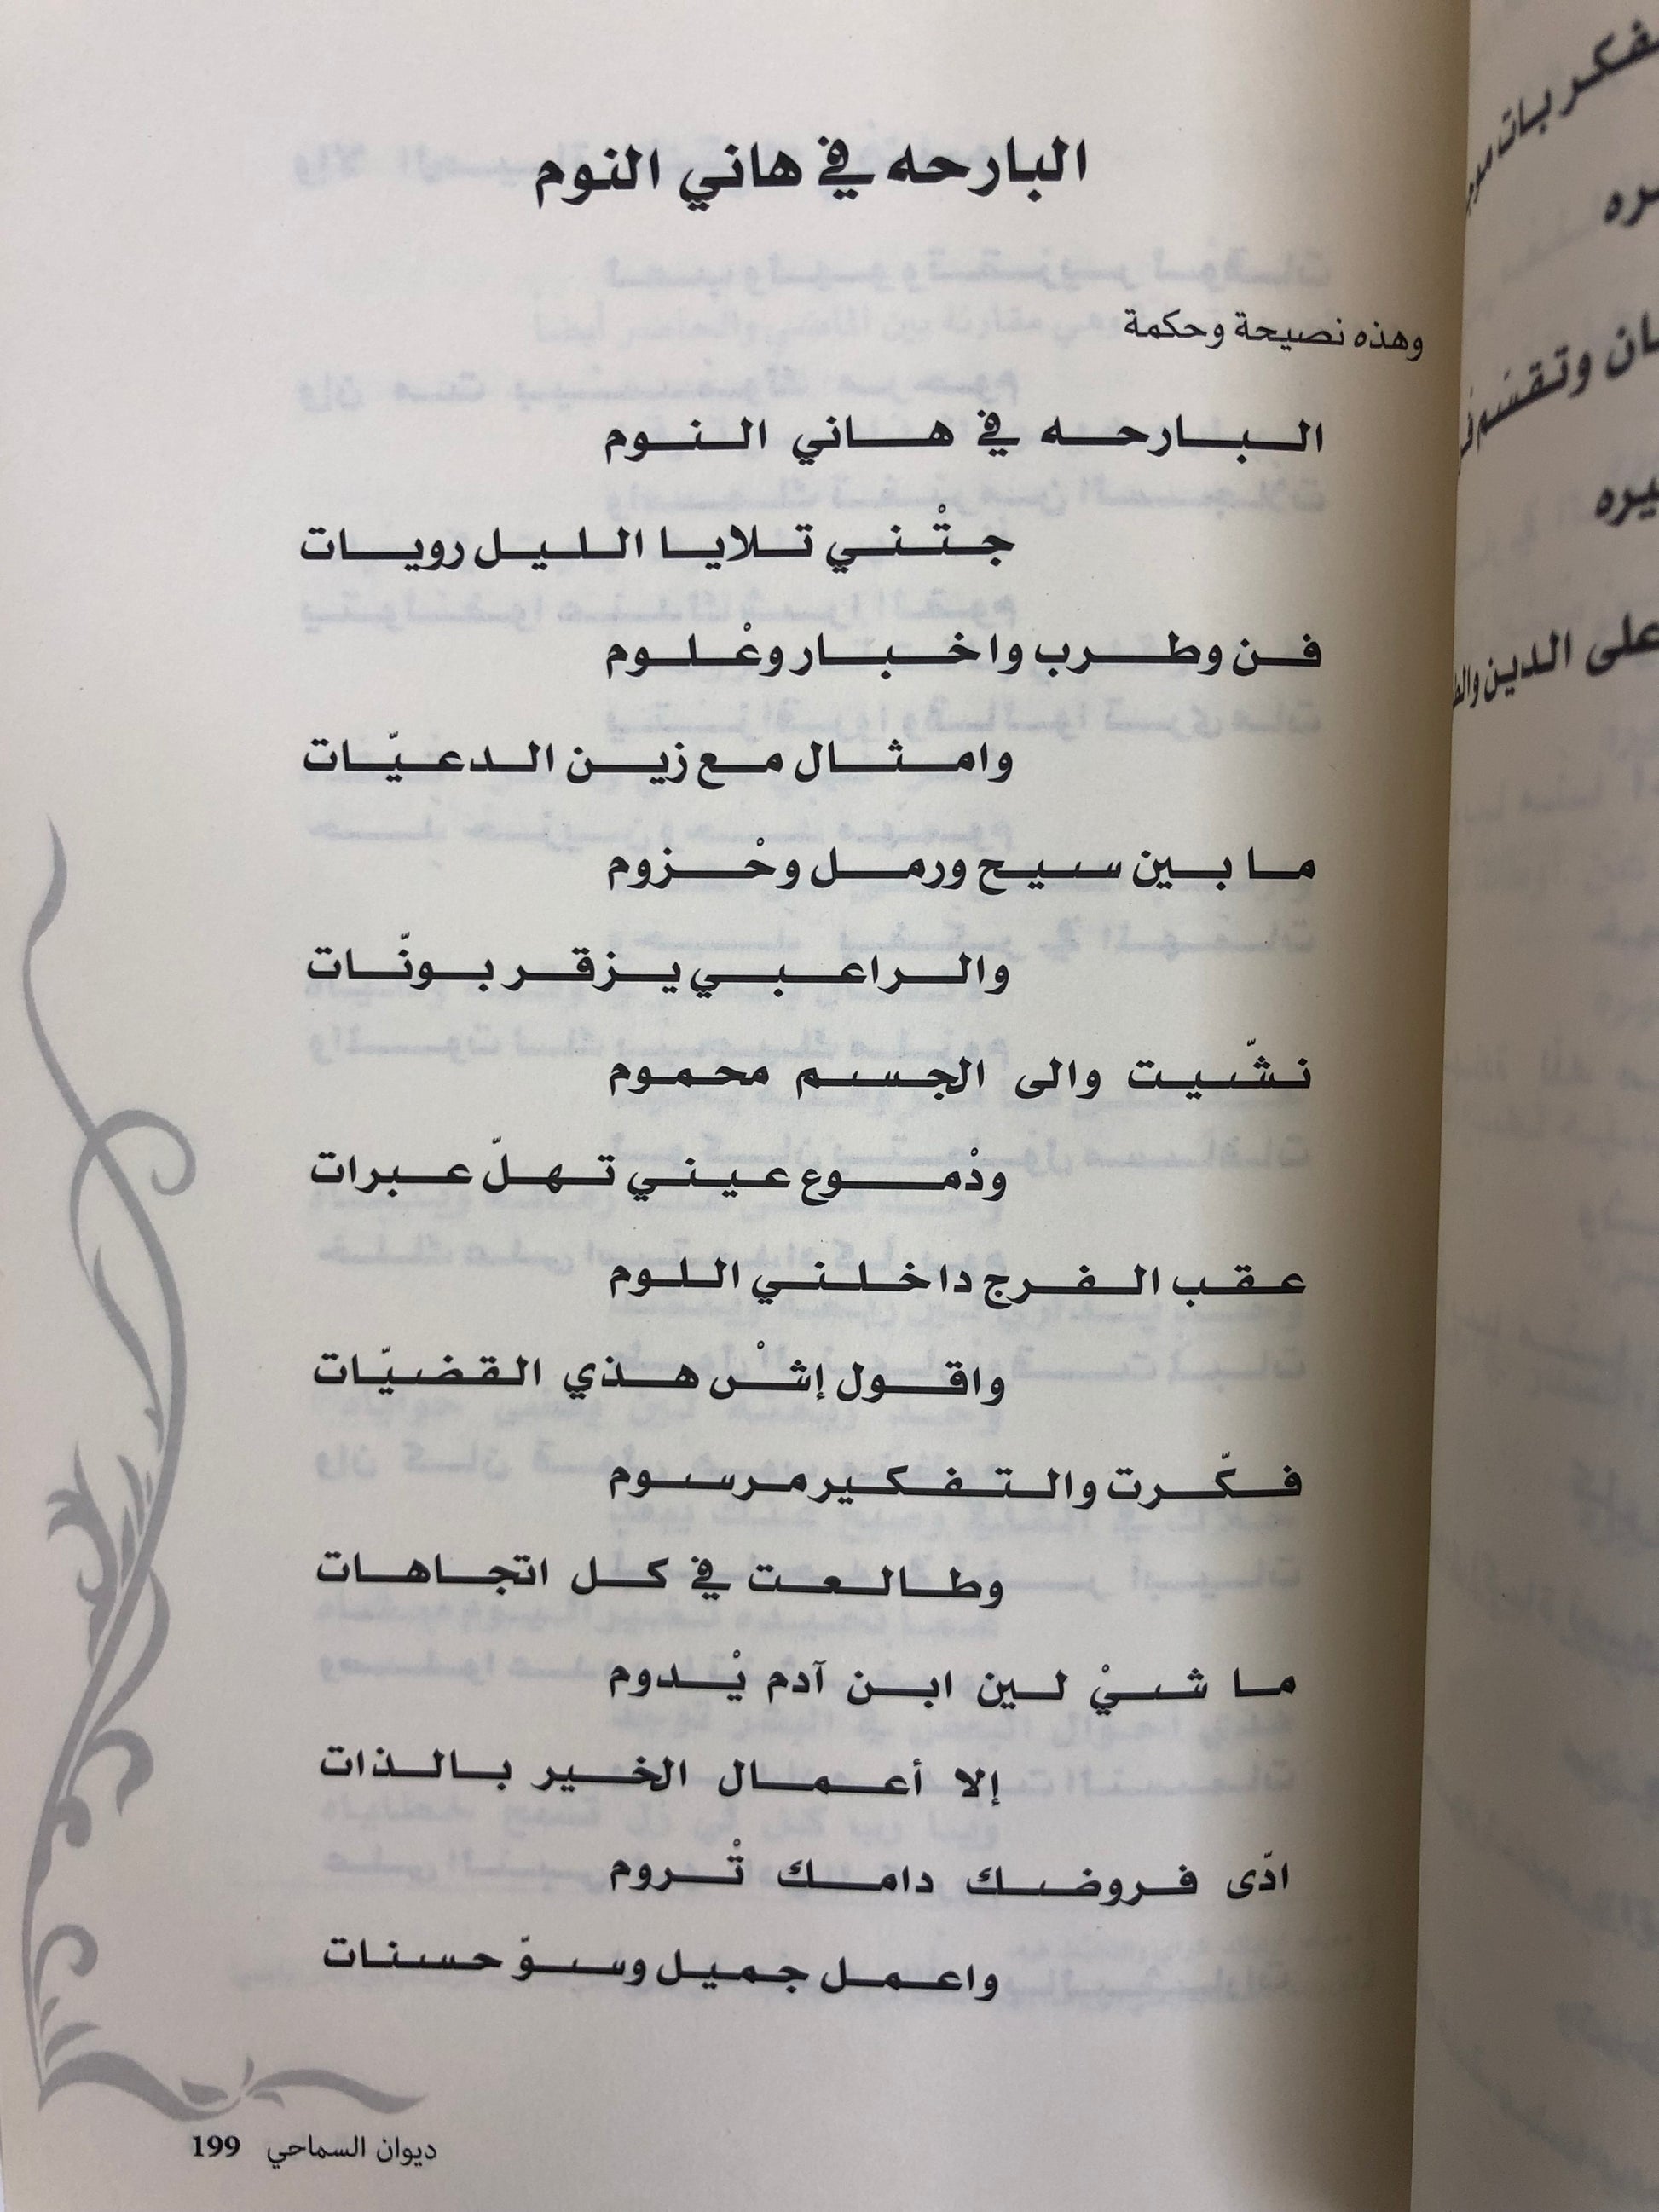 البارحه في هاني النوم
وهذه نصيحة وحكمة
البارحه في هاني النوم
جتْني تلايا الليل رويات
فن وطرب واخبار وعْلوم
وامثال مع زين الدعيّات
ما بين سيح ورمل وحْزوم
والراعبي يزقر بونّات
نشّيت والى الجسم محموم
ودْموع عيني تهلّ عبرات
عقب الفرج داخلني اللوم
واقول إشْ هذي القضيّات
فكّرت والتفكير مرسوم
وطالعت في كل اتجاهات
ما شيْ لين ابن آدم يْدوم
إلا أعمال الخير بالذات
ادّى فروضك دامك تْروم
واعمل جميل وسوّ حسنات
ديوان السماحي 199